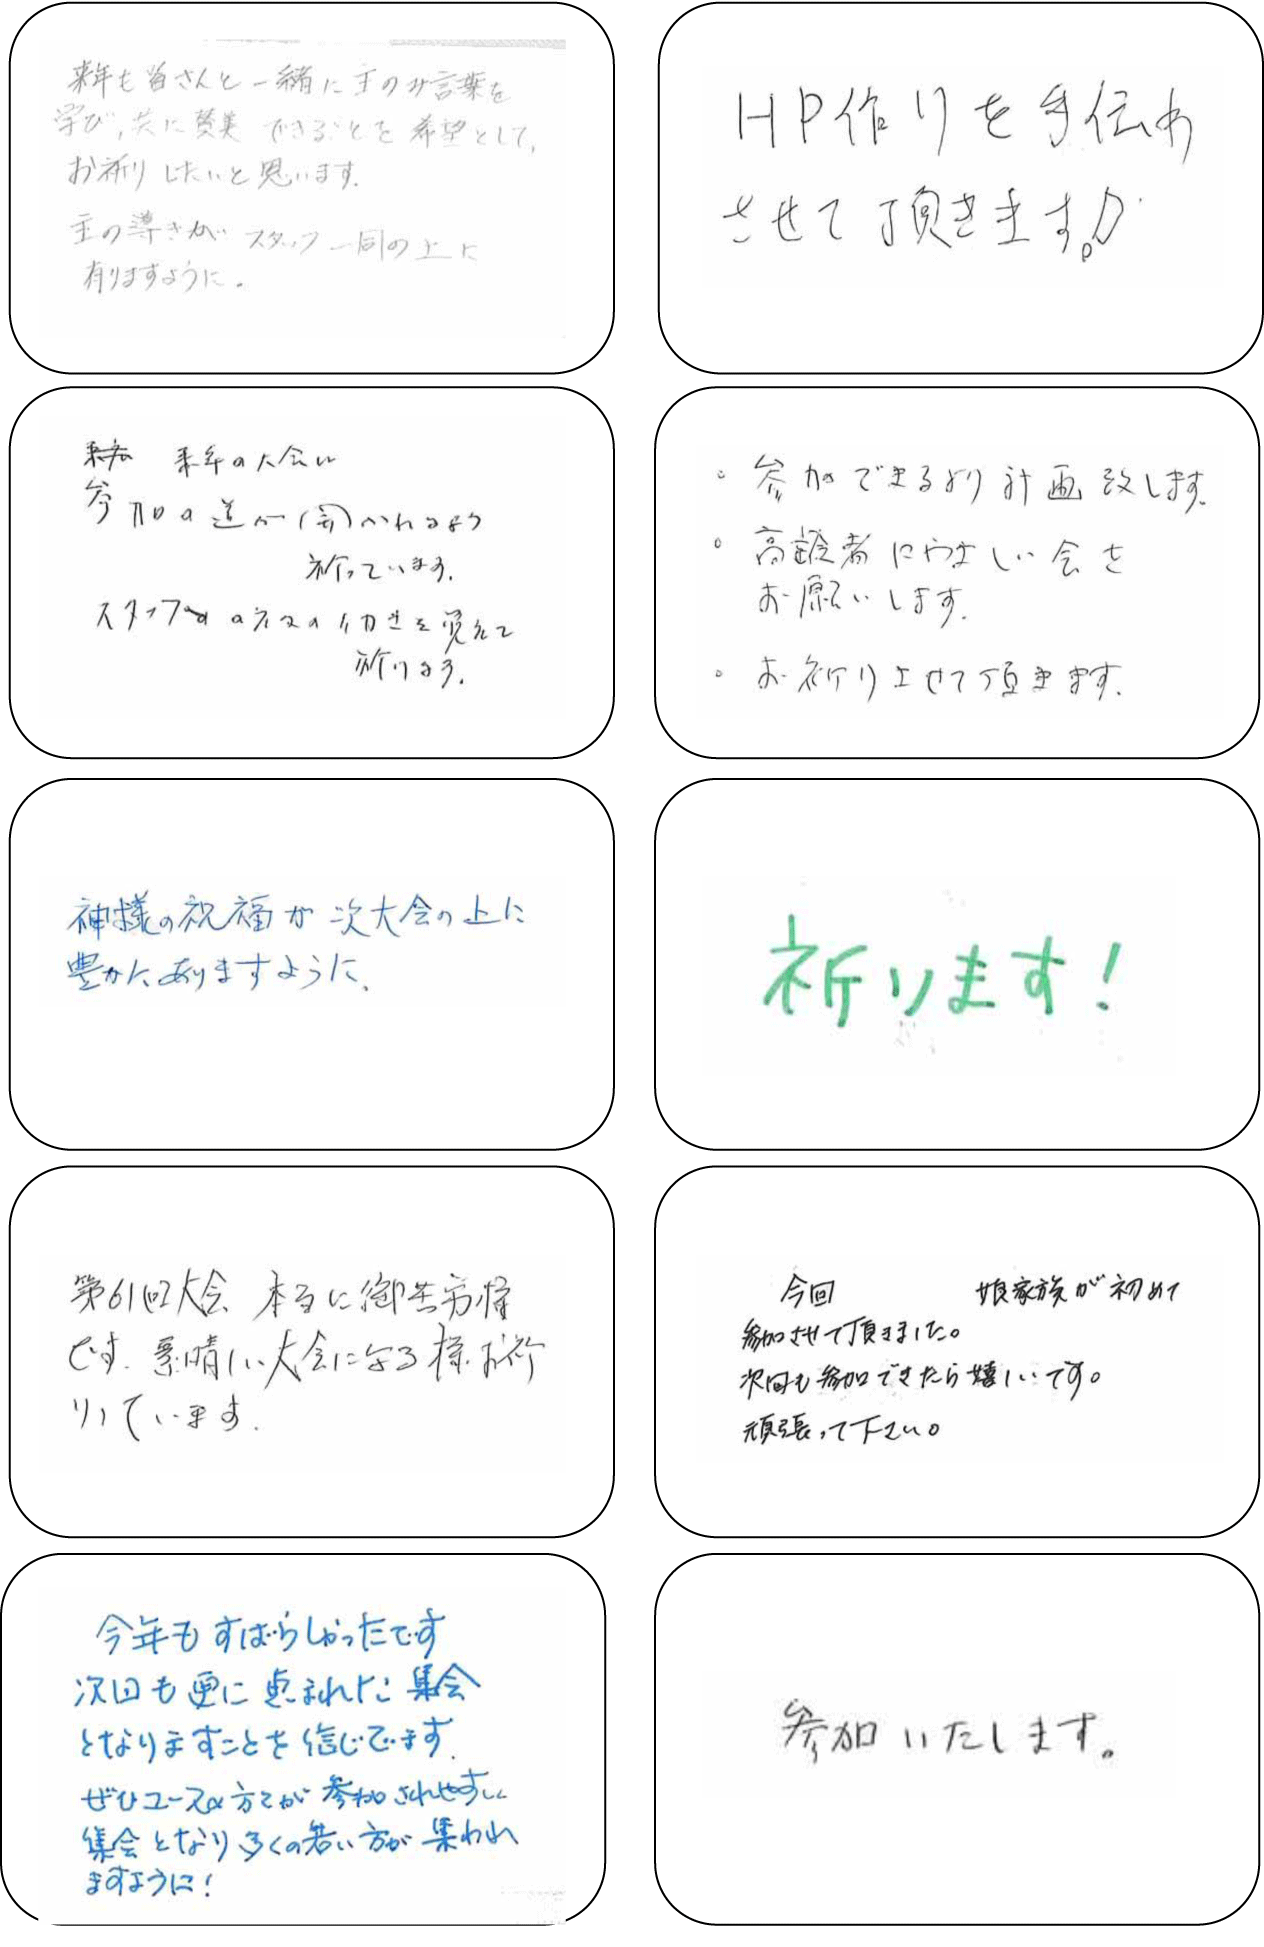 来年も皆さんと一緒に主のみ言葉を
学び,共に賛美できることを希望として,
お祈りしたいと思います.
主の導きがスタッフ一同の上に
有りますように。
HP作りを手伝わ
させて頂きます。♪
来年の大会に
参加の道が(開)かれるよう
祈っています.
スタッフの方々の働きを覚えて
祈ります.
・参加できるよう計画致します.
・高齢者にやさしい会を
お願いします.
・お祈りさせて頂きます.
神様の祝福が次大会の上に
豊かにありますように、
祈ります!
第61回大会 本当に御苦労様
です. 素晴しい大会になる様お祈
りしています.
今回 娘家族が初めて
参加させて頂きました。
次回も参加できたら嬉しいです。
頑張って下さい。
今年もすばらしかったです
次回も更に恵まれた集会
となりますことを信じてます.
ぜひユースの方々が参加されやすい
集会となり多くの若い方が集われ
ますように!
参加いたします。